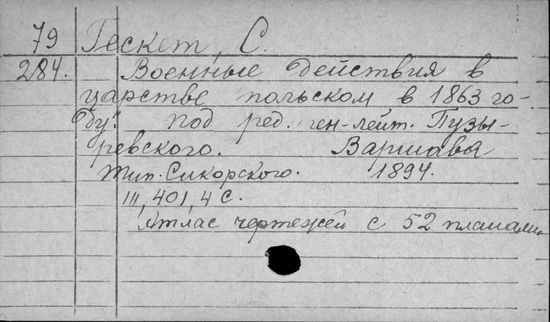 79 Гескет, С.
284. Военные действия в
царстве польском в 1863 го-
ду." под ред. ген-лейт. Пузы-
ревского. Варшава
Тип. Сикорского. 1894.
III, 401, 4 с.
Атлас чертежей с 52 планами